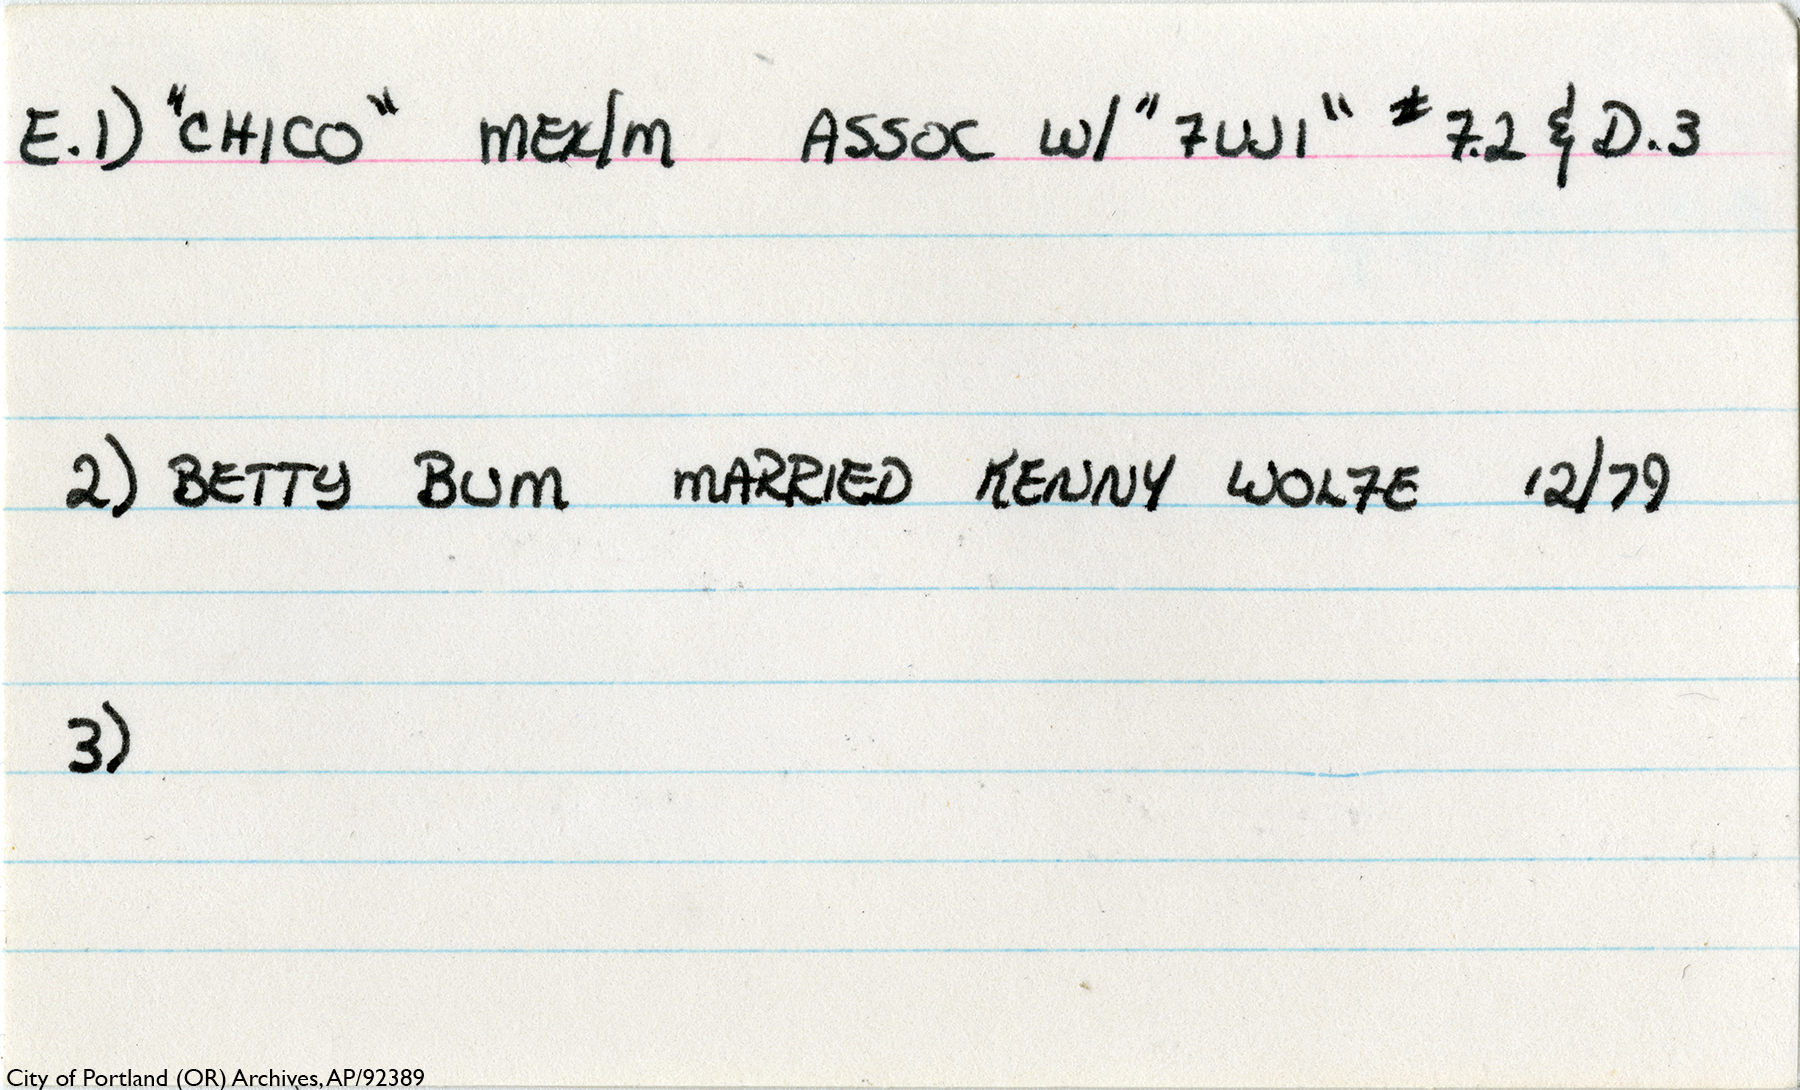 E.1) "CHICO" MEX/M ASSOC W/ "FUJI" # F.2 & D.3
2) BETTY BUM MARRIED KENNY WOLFE 12/79
3)
City of Portland (OR) Archives, AP/92389